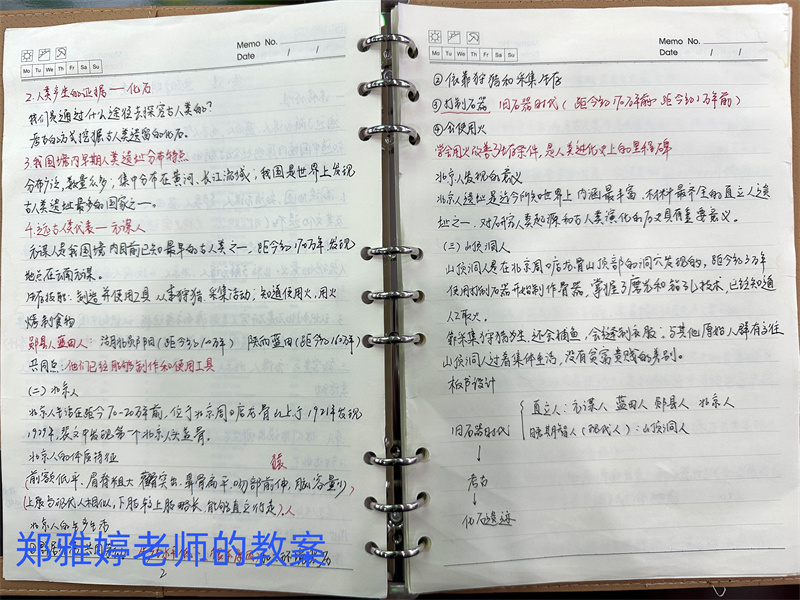 Memo No.
Date / /
Mo Tu We Th Fr Sa Su
2.人类产生的证据——化石
我们是通过什么途径去探究古人类的?
考古的方式挖掘古人类遗留的化石。
3.我国境内早期人类遗址分布特点
分布广泛,数量众多,集中分布在黄河、长江流域;我国是世界上发现
古人类遗址最多的国家之一。
4.远古人类代表——元谋人
元谋人是我国境内目前已知最早的古人类之一,距今约170万年,发现
地点在云南元谋。
所有技能:制造并使用工具 从事狩猎、采集活动;知道使用火,用火
烤制食物
郧县人、蓝田人:湖北郧阳(距今约100万年) 陕西蓝田(距今约163万年)
共同点:他们已经能够制作和使用工具
(二)北京人
北京人生活在距今70-20万年前,位于北京周口店龙骨山上于1921年发现
1929年,裴文中发现第一个北京人头盖骨。
北京人的体质特征
猿
(前额低平、眉脊粗大 颧骨突出、鼻骨扁平、吻部前伸,脑容量少)
(上肢与现代人相似,下肢较上肢略长,能够直立行走)。人
北京人的生产生活
郑雅婷老师的教案
2
Memo No.
Date / /
Mo Tu We Th Fr Sa Su
②依靠狩猎和采集生存
③打制石器 旧石器时代(距今约170万年前-距今约1万年前)
④会使用火
学会用火改善了生存条件,是人类进化史上的里程碑
北京人发现的意义
北京人遗址是迄今所知世界上内涵最丰富、材料最齐全的直立人遗
址之一,对研究人类起源和古人类演化的历史具有重要意义。
(三)山顶洞人
山顶洞人是在北京周口店龙骨山顶部的洞穴发现的,距今约3万年
使用打制石器 开始制作骨器,掌握了磨光和钻孔技术,已经知道
人工取火。
靠采集狩猎为生,还会捕鱼,会缝制衣服。与其他原始人群有交往
山顶洞人过着集体生活,没有贫富贵贱的差别。
板书设计
直立人:元谋人 蓝田人 郧县人 北京人
旧石器时代
晚期智人(现代人):山顶洞人
↓
考古
↓
化石遗迹